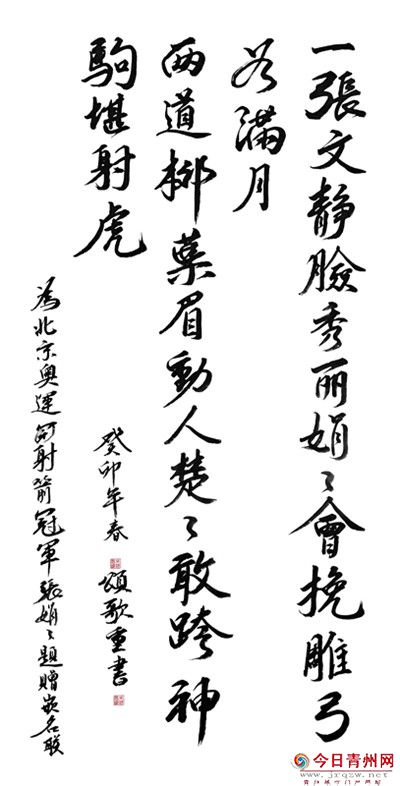 一張文靜臉秀丽娟〻會挽雕弓
如滿月
两道柳葉眉動人楚〻敢跨神
駒堪射虎
癸卯年春
頌歌重書
為北京奧運會射箭冠軍張娟〻題贈嵌名联
今日青州网
www.jrqzw.net